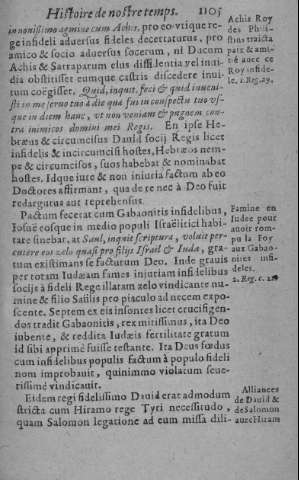 Histoire de nostre temps. 1105
in nonissimo agmine cum Achis. pro eo vtique re-
ge infideli aduersus fideles decertaturus, pro
amico & socio aduersus socerum, ni Dacum
Achis & Satraparum eius diffidentia vel inui-
dia obstitisset eumque castris discedere inui-
tum coëgisset. Quid, inquit, feci & quid inueni-
sti in me seruo tuo à die qua fui in conspectu tuo vs-
que in diem hanc, vt non veniam & pugnem con-
tra inimicos domini mei Regis. En ipse He-
bræus & circumcisus Dauid socij Regis licet
infidelis & incircumcisi hostes, Hebræos nem-
pe & circumcisos, suos habebat & nominabat
hostes. Idque iure & non iniuria factum ab eo
Doctores affirmant, qua de re nec à Deo fuit
redargutus aut reprehensus.
Pactum fecerat cum Gabaonitis infidelibus,
Iosué eosque in medio populi Israëlitici habi-
tare sinebat, at Saul, inquit scriptura, voluit per-
cutere eos zelo quasi pro filijs Israël & Iuda, gra-
tum existimans se facturum Deo. Inde grauis
per totam Iudæam fames iniuriam infidelibus
socijs à fideli Rege illatam zelo vindicante nu-
mine & filio Saülis pro piaculo ad necem expo-
scente. Septem ex eis infontes licet crucifigen-
dos tradit Gabaonitis, rex mitissimus, ita Deo
iubente, & reddita Iudæis fertilitate gratum
id sibi apprimè fuisse testante. Ita Deus fœdus
cum infidelibus populis factum à populo fideli
non improbauit, quinimmo violatum seue-
rissimè vindicauit.
Eidem regi fidelissimo Dauid erat admodum
stricta cum Hiramo rege Tyri necessitudo,
quam Salomon legatione ad eum missa dili-
Achis Roy
des Phili-
stins traicta
paix & ami-
tié auec ce
Roy infide-
le. 1. Reg. 29,
Famine en
Iudee pour
auoir rom-
pu la Foy
aux Gabao-
nites infi-
deles.
2. Reg. c. 21.
Alliances
de Dauid &
de Salomon
auec Hiram